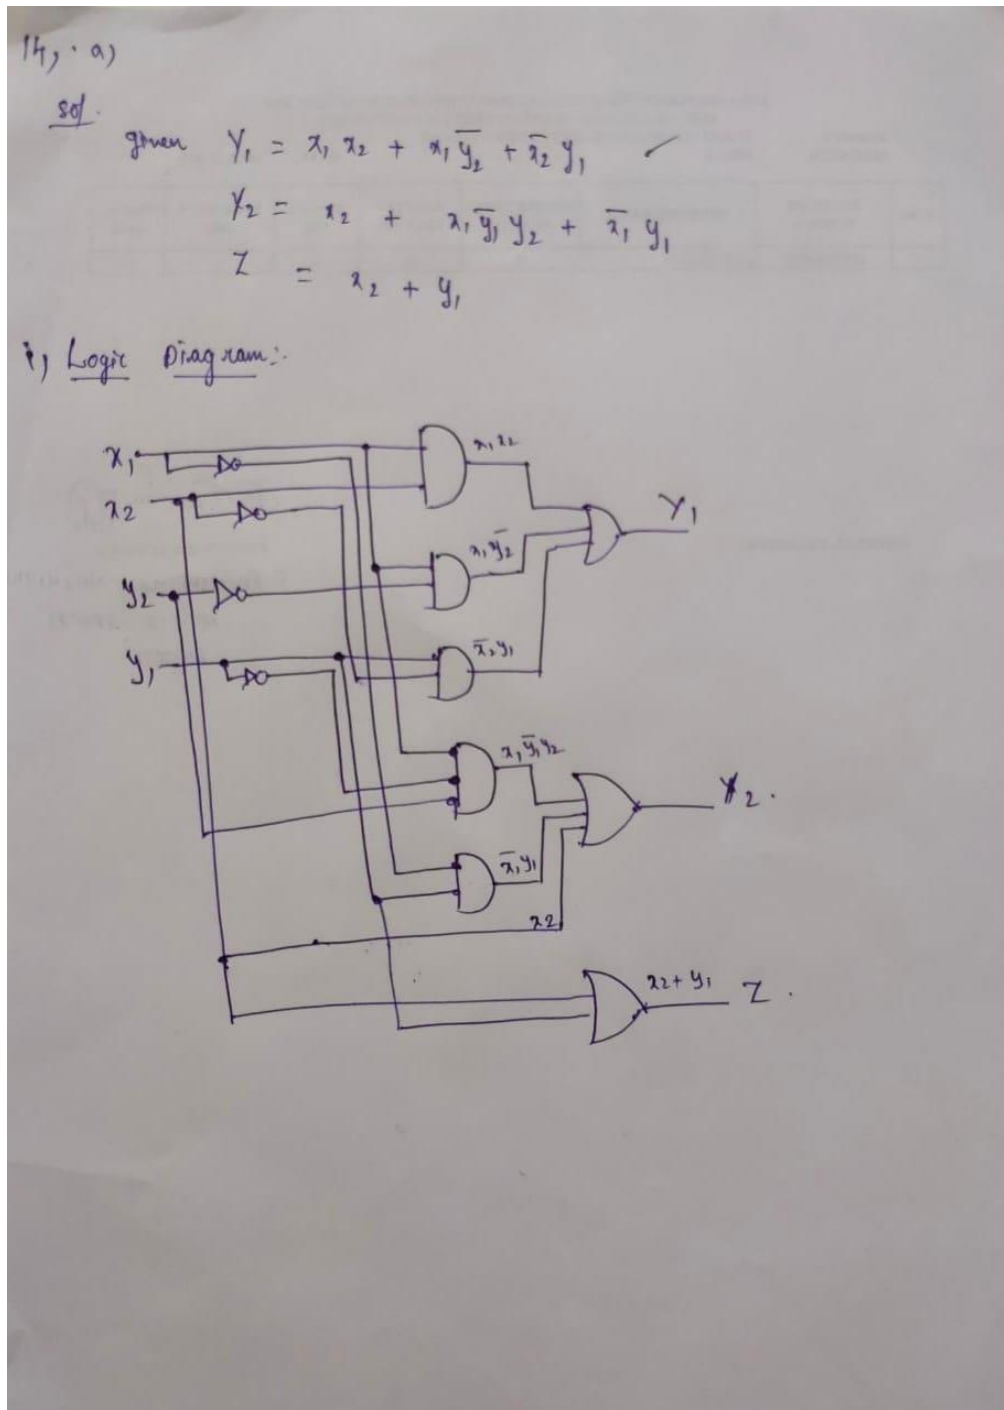 14, · a,
sol.
given Y₁ = x₁ x₂ + x₁ y̅₂ + x̅₂ y₁
Y₂ = x₂ + x₁ y̅₁ y₂ + x̅₁ y₁
Z = x₂ + y₁
i, Logic Diagram:-
x₁
x₂
y₂
y₁
x₁x₂
Y₁
x₁y̅₂
x̅₂y₁
x₁y̅₁y₂
Y₂.
x̅₁y₁
x₂
x₂+y₁
Z.